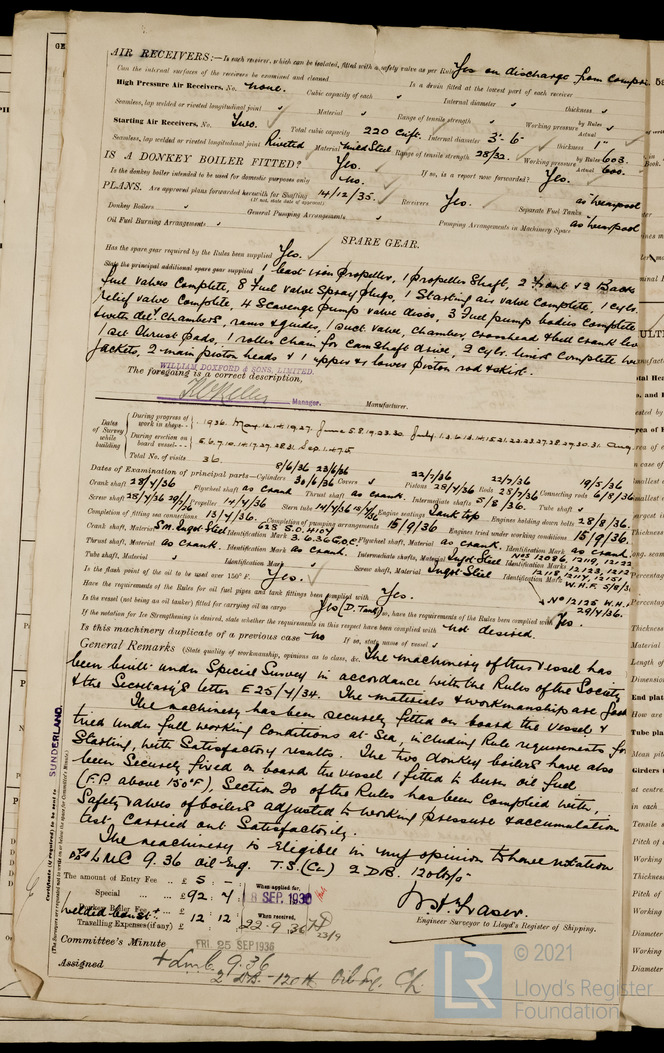 AIR RECEIVERS:—Is each receiver, which can be isolated, fitted with a safety valve as per Rule Yes on discharge from compr
Can the internal surfaces of the receivers be examined and cleaned Is a drain fitted at the lowest part of each receiver
High Pressure Air Receivers, No. None. Cubic capacity of each Internal diameter thickness
Seamless, lap welded or riveted longitudinal joint Material Range of tensile strength Working pressure by Rules Actual
Starting Air Receivers, No. Two. Total cubic capacity 220 Cuft. Internal diameter 3'-6" thickness 1"
Seamless, lap welded or riveted longitudinal joint Riveted Material Mild Steel Range of tensile strength 28/32. Working pressure by Rules 603. Actual 600.
IS A DONKEY BOILER FITTED? Yes. If so, is a report now forwarded? Yes.
Is the donkey boiler intended to be used for domestic purposes only No.
PLANS. Are approved plans forwarded herewith for Shafting 14/12/35. Receivers Yes. Separate Fuel Tanks as Liverpool
(If not, state date of approval)
Donkey Boilers General Pumping Arrangements Pumping Arrangements in Machinery Space as Liverpool
Oil Fuel Burning Arrangements
SPARE GEAR.
Has the spare gear required by the Rules been supplied Yes.
State the principal additional spare gear supplied 1 Cast iron Propeller, 1 Propeller Shaft, 2 front & 2 Back
fuel valves Complete, 8 Fuel valve Spray Plugs, 1 Starting air valve Complete, 1 Cyl.
relief valve Complete, 4 Scavenge Pump valve discs, 3 Fuel pump bodies Complete
with del. Chambers, rams & guides, 1 suct valve, chamber, crosshead & bell crank lev
1 set Thrust Pads, 1 roller chain for camshaft drive, 2 Cyl. liners Complete
jackets, 2 main piston heads & 1 upper & lower Piston rod & skirt.
WILLIAM DOXFORD & SONS, LIMITED.
The foregoing is a correct description,
Manager. Manufacturer.
Dates of Survey while building
During progress of work in shops -- 1936. May.
During erection on board vessel ---
Total No. of visits 36.
Dates of Examination of principal parts—Cylinders 8/6/36 23/6/36 30/6/36 Covers Pistons 22/7/36 28/4/36 Rods 22/7/36 28/7/36 Connecting rods 19/5/36 6/8/36
Crank shaft 28/4/36 Flywheel shaft as crank Thrust shaft as crank. Intermediate shafts 5/8/36. Tube shaft
Screw shaft 28/4/36 Propeller 14/4/36 Stern tube 14/4/36 Engine seatings Tank top Engines holding down bolts 28/8/36.
Completion of fitting sea connections 13/4/36. Completion of pumping arrangements 15/9/36 Engines tried under working conditions 15/9/36.
Crank shaft, Material Sm. Ingot Steel Identification Mark 628 Flywheel shaft, Material as crank. Identification Mark as crank.
Thrust shaft, Material as crank. Identification Mark as crank. Intermediate shafts, Material Ingot Steel Identification Marks Nos 12086, 12119, 12122
Tube shaft, Material Identification Mark Screw shaft, Material Ingot Steel Identification Mark
No 12125 W.H.F
29/4/36.
Is the flash point of the oil to be used over 150° F. Yes.
Have the requirements of the Rules for oil fuel pipes and tank fittings been complied with Yes.
Is the vessel (not being an oil tanker) fitted for carrying oil as cargo Yes (D. Tank) If so, have the requirements of the Rules been complied with Yes.
If the notation for Ice Strengthening is desired, state whether the requirements in this respect have been complied with not desired.
Is this machinery duplicate of a previous case No If so, state name of vessel
General Remarks (State quality of workmanship, opinions as to class, &c. The machinery of this vessel has
been built under Special Survey in accordance with the Rules of the Society
& the Secretary's letter E 25/4/34. The materials & workmanship are good
The machinery has been securely fitted on board the vessel &
tried under full working Conditions at Sea, including Rule requirements for
Starting, with Satisfactory results. The two donkey boilers have also
been Securely fixed on board the vessel & fitted to burn oil fuel
(F.P. above 150°F), Section 20 of the Rules has been Complied with,
Safety valves of boilers adjusted to working pressure & accumulation
test Carried out Satisfactorily.
The machinery is Eligible in my opinion to have notation
LMC 9.36 oil Eng. T.S. (CL) 2 D.B. 120 lb/sq
SUNDERLAND.
Certificate (if required) to be sent to
(The Surveyors are requested not to write on or below the space for Committee's Minute.)
The amount of Entry Fee £ 5 : - : When applied for,
Special £ 92 : 4 : 18 SEP. 1936
Donkey Boiler Fee £ 12 : 12 : When received,
Travelling Expenses (if any) £ 22.9.36 23/9
W. Fraser.
Engineer Surveyor to Lloyd's Register of Shipping.
Committee's Minute FRI. 25 SEP 1936
Assigned + Lmc 9.36
2 DB - 120 lb Oil Eng. CL
© 2021
Lloyd's Register
Foundation